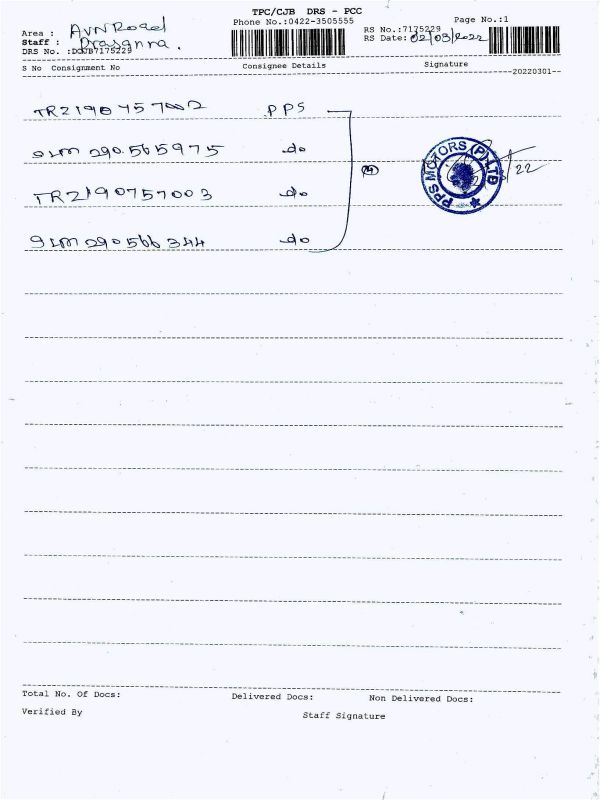 TPC/CJB DRS - PCC
Phone No.:0422-3505555
Page No.:1
Area : AVN Road
Staff : Prasanna.
DRS No. :DCJB7175229
RS No.:7175229
RS Date: 02/03/2022
S No Consignment No Consignee Details Signature
20220301
TR2190757002 PPS
SLM290565975 do
TR2190757003 do
SLM290566344 do
PPS MOTORS (P) LTD
/22
Total No. Of Docs: Delivered Docs: Non Delivered Docs:
Verified By Staff Signature